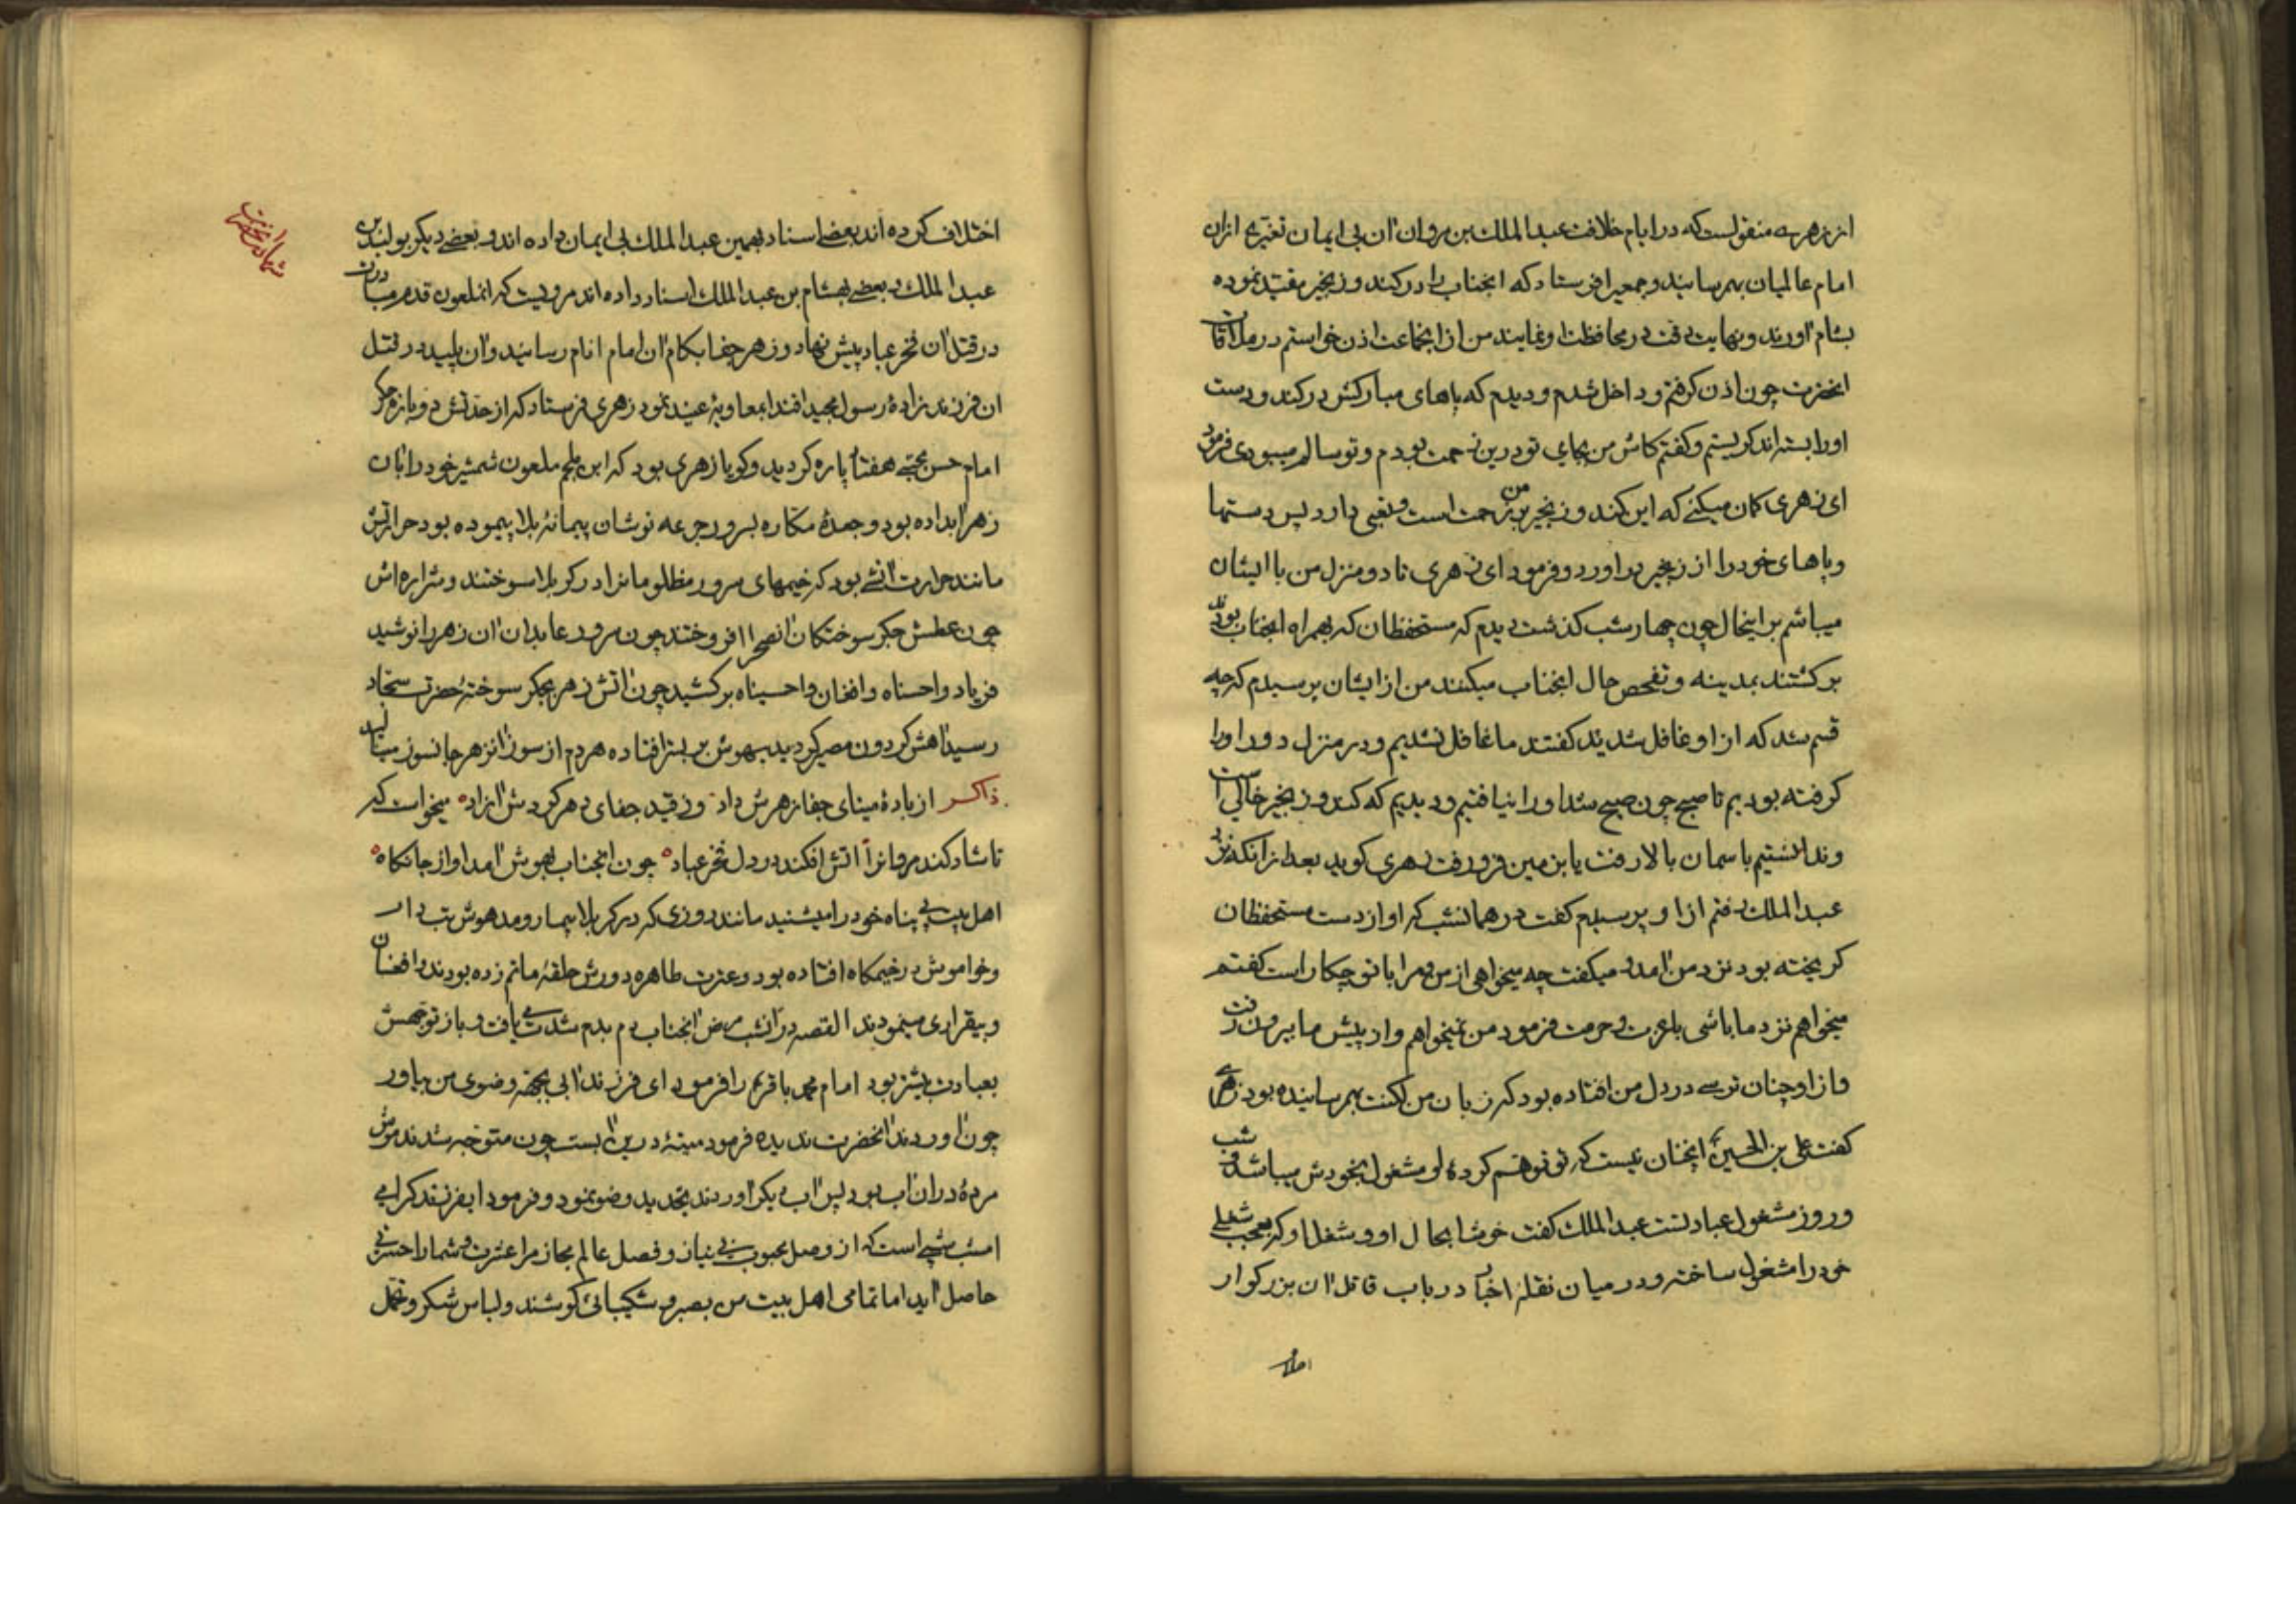 از زهری منقولست که در ایام خلافت عبدالملک بن مروان آن بی ایمان تغیری ازان
امام عالمیان بهم رسانید و جمعی را فرستاد که آنجناب را در کند و زنجیر مقید نموده
بشام آورند و نهایت دقت در محافظت او نمایند من از آنجماعت اذن خواستم در ملاقات
آنحضرت چون اذن گرفتم و داخل شدم و دیدم که پاهای مبارکش در کند و دست
او را بسته اند گریستم و گفتم کاش من بجای تو درین زحمت بودم و تو سالم میبودی فرمود
ای زهری گمان میکنی که این کند و زنجیر بر من زحمت است و تعبی دارد پس دستها
و پاهای خود را از زنجیر بر آورد و فرمود ای زهری تا دو منزل من با ایشان
میباشم بر اینحال چون چهار شب گذشت دیدم که مستحفظان که همراه آنجناب بودند
برگشتند بمدینه و تفحص حال آنجناب میکنند من از ایشان پرسیدم که چه
قسم شد که از او غافل شدید گفتند ما غافل نشدیم و در منزل دور او را
گرفته بودیم تا صبح چون صبح شد او را نیافتیم و دیدیم که کند و زنجیر خالی است
و ندانستیم باسمان بالا رفت یا بزمین فرو رفت زهری گوید بعد از آنکه نزد
عبدالملک رفتم از او پرسیدم گفت در همانشب که او از دست مستحفظان
گریخته بود نزد من آمد و میگفت چه میخواهی از من و مرا با تو چکار است گفتم
میخواهم نزد ما باشی با عزت و حرمت فرمود من نمیخواهم و از پیش ما بیرون رفت
و از او چنان ترسی در دل من افتاده بود که زبان من لکنت بهم رسانیده بود زهری
گفت علی بن الحسین آنچنان نیست که تو توهم کردهٔ او مشغول بخودش میباشد و شب
و روز مشغول عبادتست عبدالملک گفت خوشا بحال او و شغل او که بعجب شغلی
خود را مشغول ساخته و در میان نقله اخبار در باب قاتل آن بزرگوار
اختلاف کرده اند بعضی اسناد بهمین عبدالملک بی ایمان داده اند و بعضی دیگر بولید بن
عبدالملک و بعضی بهشام بن عبدالملک اسناد داده اند مرویست که آنملعون قدم مبادرت
در قتل آن فخر عباد پیش نهاد و زهر جفا بکام آن امام انام رسانید و آن پلید در قتل
آن فرزند زادهٔ رسول مجید اقتدا بمعاویهٔ عنید نمود زهری فرستاد که از حدتش دوباره جگر
امام حسن مجتبی هفتاد پاره گردید و گویا زهری بود که ابن ملجم ملعون شمشیر خود را بان
زهر آبداده بود و جعدهٔ مکاره بسرور جرعه نوشان پیمانهٔ بلا پیموده بود حرارتش
مانند حرارت آتشی بود که خیمهای سرور مظلومانرا در کربلا سوختند و شراره اش
چون عطش جگر سوختگان آنصحرا افروختند چون سرور عابدان آن زهر را نوشید
فریاد واحسناه و افغان واحسیناه برکشید چون آتش زهر بجگر سوختهٔ حضرت سجاد
رسید آهش گردون مصیر گردید بیهوش بر بستر افتاده هر دم از سوز آنزهر جانسوز مینالید
ذاکر از بادهٔ مینای جفا زهرش داد وز قید جفای دهر کردش آزاد میخواست که
تا شاد کند مروانرا آتش افکند در دل فخر عباد چون آنجناب بهوش آمد آواز جانکاه
اهل بیت بی پناه خود را میشنید مانند روزی که در کربلا بیمار و مدهوش تب دار
و خواموش در خیمگاه افتاده بود و عترت طاهره دورش حلقهٔ ماتم زده بودند و افغان
و بیقراری مینمودند القصه در آنشب مرض آنجناب دم بدم شدت می یافت و باز توجهش
بعبادت بیشتر بود امام محمد باقر را فرمود ای فرزند آبی بجهة وضوی من بیاور
چون آوردند آنحضرت ندیده فرمود میتهٔ درین آبست چون متوجه شدند موش
مردهٔ در آن آب بود پس آب دیگر آوردند تجدید وضو نمود و فرمود ایفرزند گرامی
امشب شبی است که از وصل محبوب بی نیاز و فصل عالم مجاز مرا عشرت و شما را حسرتی
حاصل آید اما تمامی اهل بیت من بصبر و شکیبائی کوشند و لباس شکر و تحمل